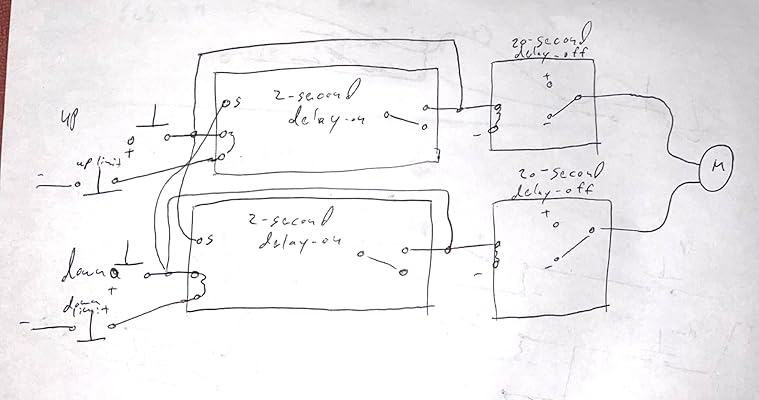 20-second
delay-off
+
-
up
+
up limit
-
S
2-second
delay-on
-
M
20-second
delay-off
+
-
-
down
+
down
limit
-
S
2-second
delay-on